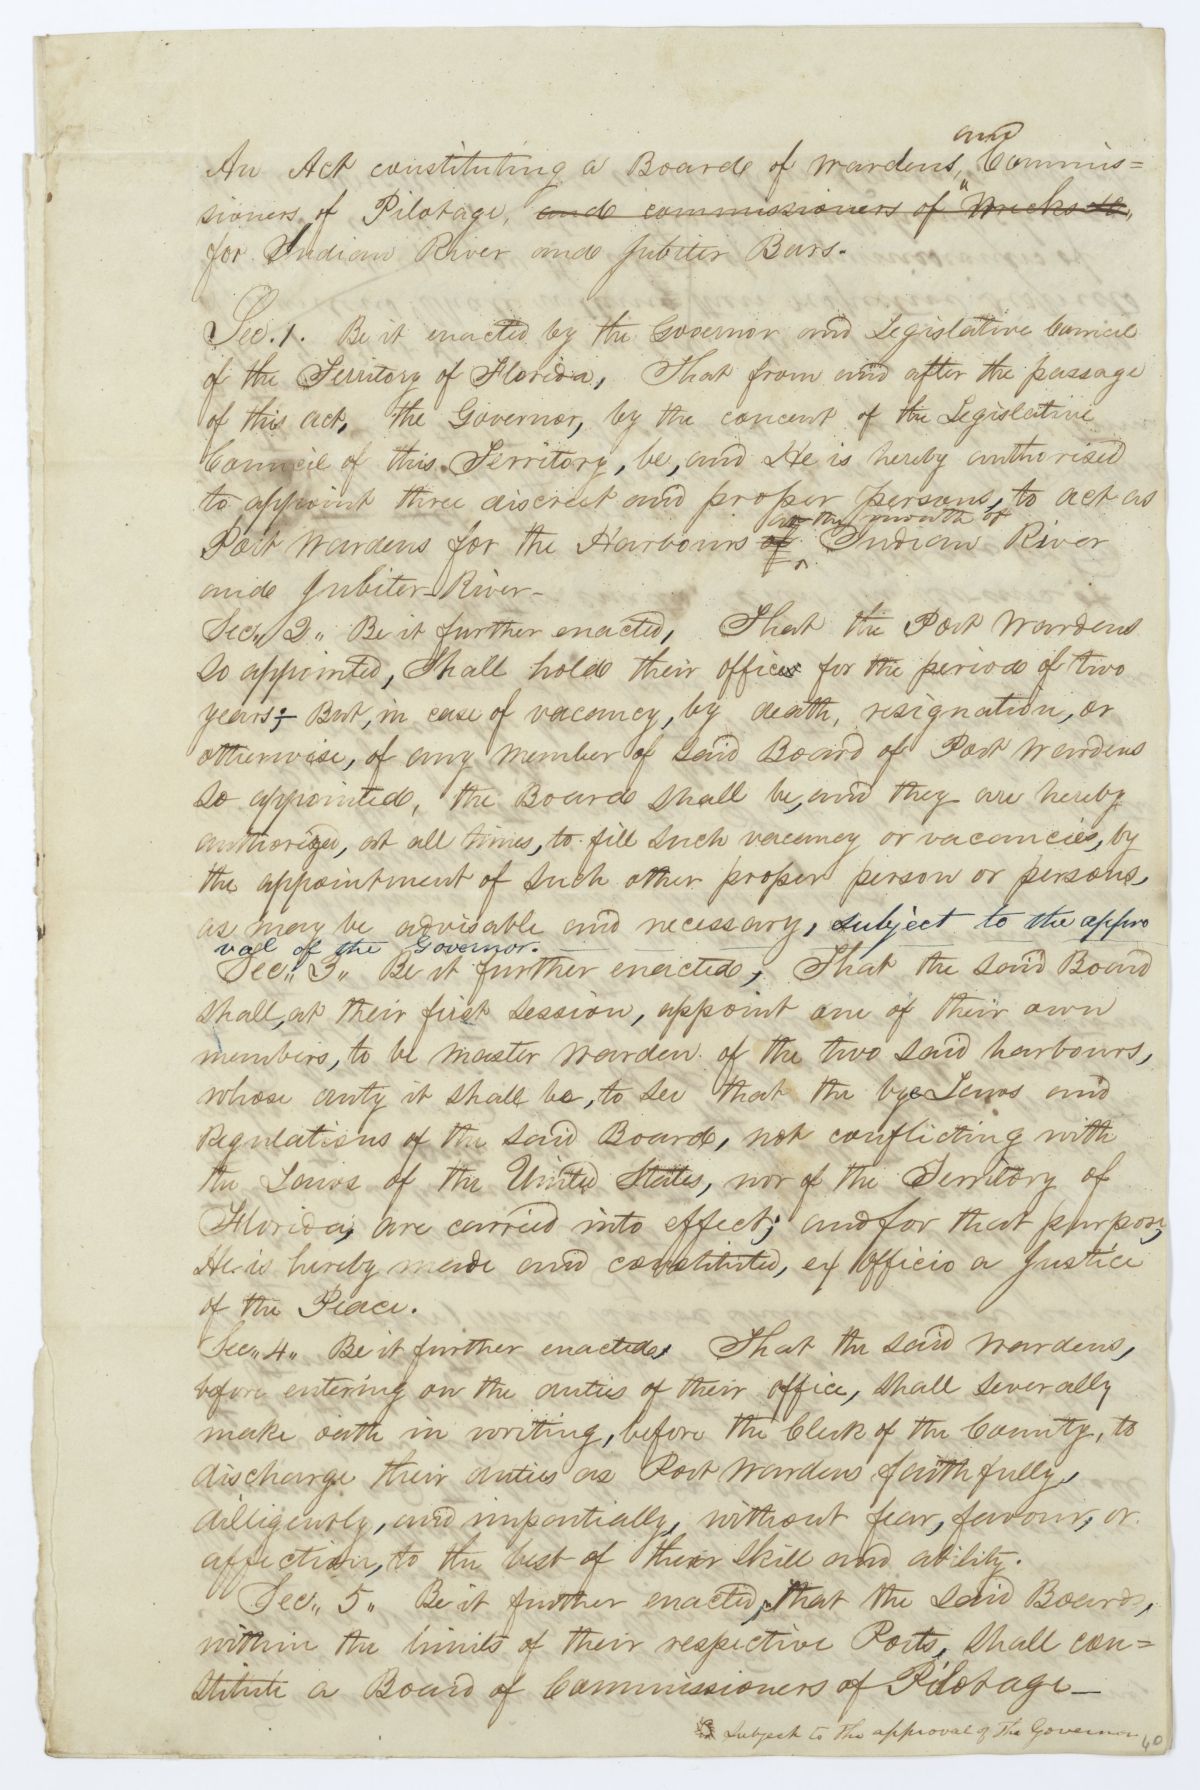 and
An Act constituting a Board of Wardens, Commis=
sioners of Pilotage, and commissioners of "Wrecks &c,
for Indian River and Jubiter Bars.
Sec. 1. Be it enacted by the Governor and Legislative Council
of the Territory of Florida, That from and after the passage
of this act, the Governor, by the concent of the Legislative
Council of this Territory, be, and He is hereby authorised
to appoint three discreet and proper persons, to act as
at the mouth of
Port Wardens for the Harbours of Indian River
and Jubiter River-
Sec,, 2,, Be it further enacted, That the Port Wardens
so appointed, Shall hold their office for the period of two
years; But, in case of vacancy, by death, resignation, or
otherwise, of any member of said Board of Port Wardens
so appointed, the Board shall be, and they are hereby
authorized, at all times, to fill such vacancy or vacancies, by
the appointment of such other proper person or persons,
as may be advisable and necessary, subject to the appro
val of the Governor.
Sec,, 3,, Be it further enacted, That the said Board
shall, at their first session, appoint one of their own
members, to be Master Warden of the two said harbours,
whose duty it shall be, to see that the bye Laws and
Regulations of the said Board, not conflicting with
the Laws of the United States, nor of the Territory of
Florida, are carried into effect; and for that purpose,
He is hereby made and constituted, ex officio a Justice
of the Peace.
Sec,, 4,, Be it further enacted, That the said Wardens,
before entering on the duties of their office, shall severally
make oath in writing, before the Clerk of the County, to
discharge their duties as Port Wardens faithfully,
dilligently, and impartially, without fear, favour, or
affection, to the best of their skill and ability.
Sec,, 5,, Be it further enacted, that the said Board,
within the limits of their respective Ports, shall con=
stitute a Board of Commissioners of Pilotage-
subject to the approval of the Governor
40